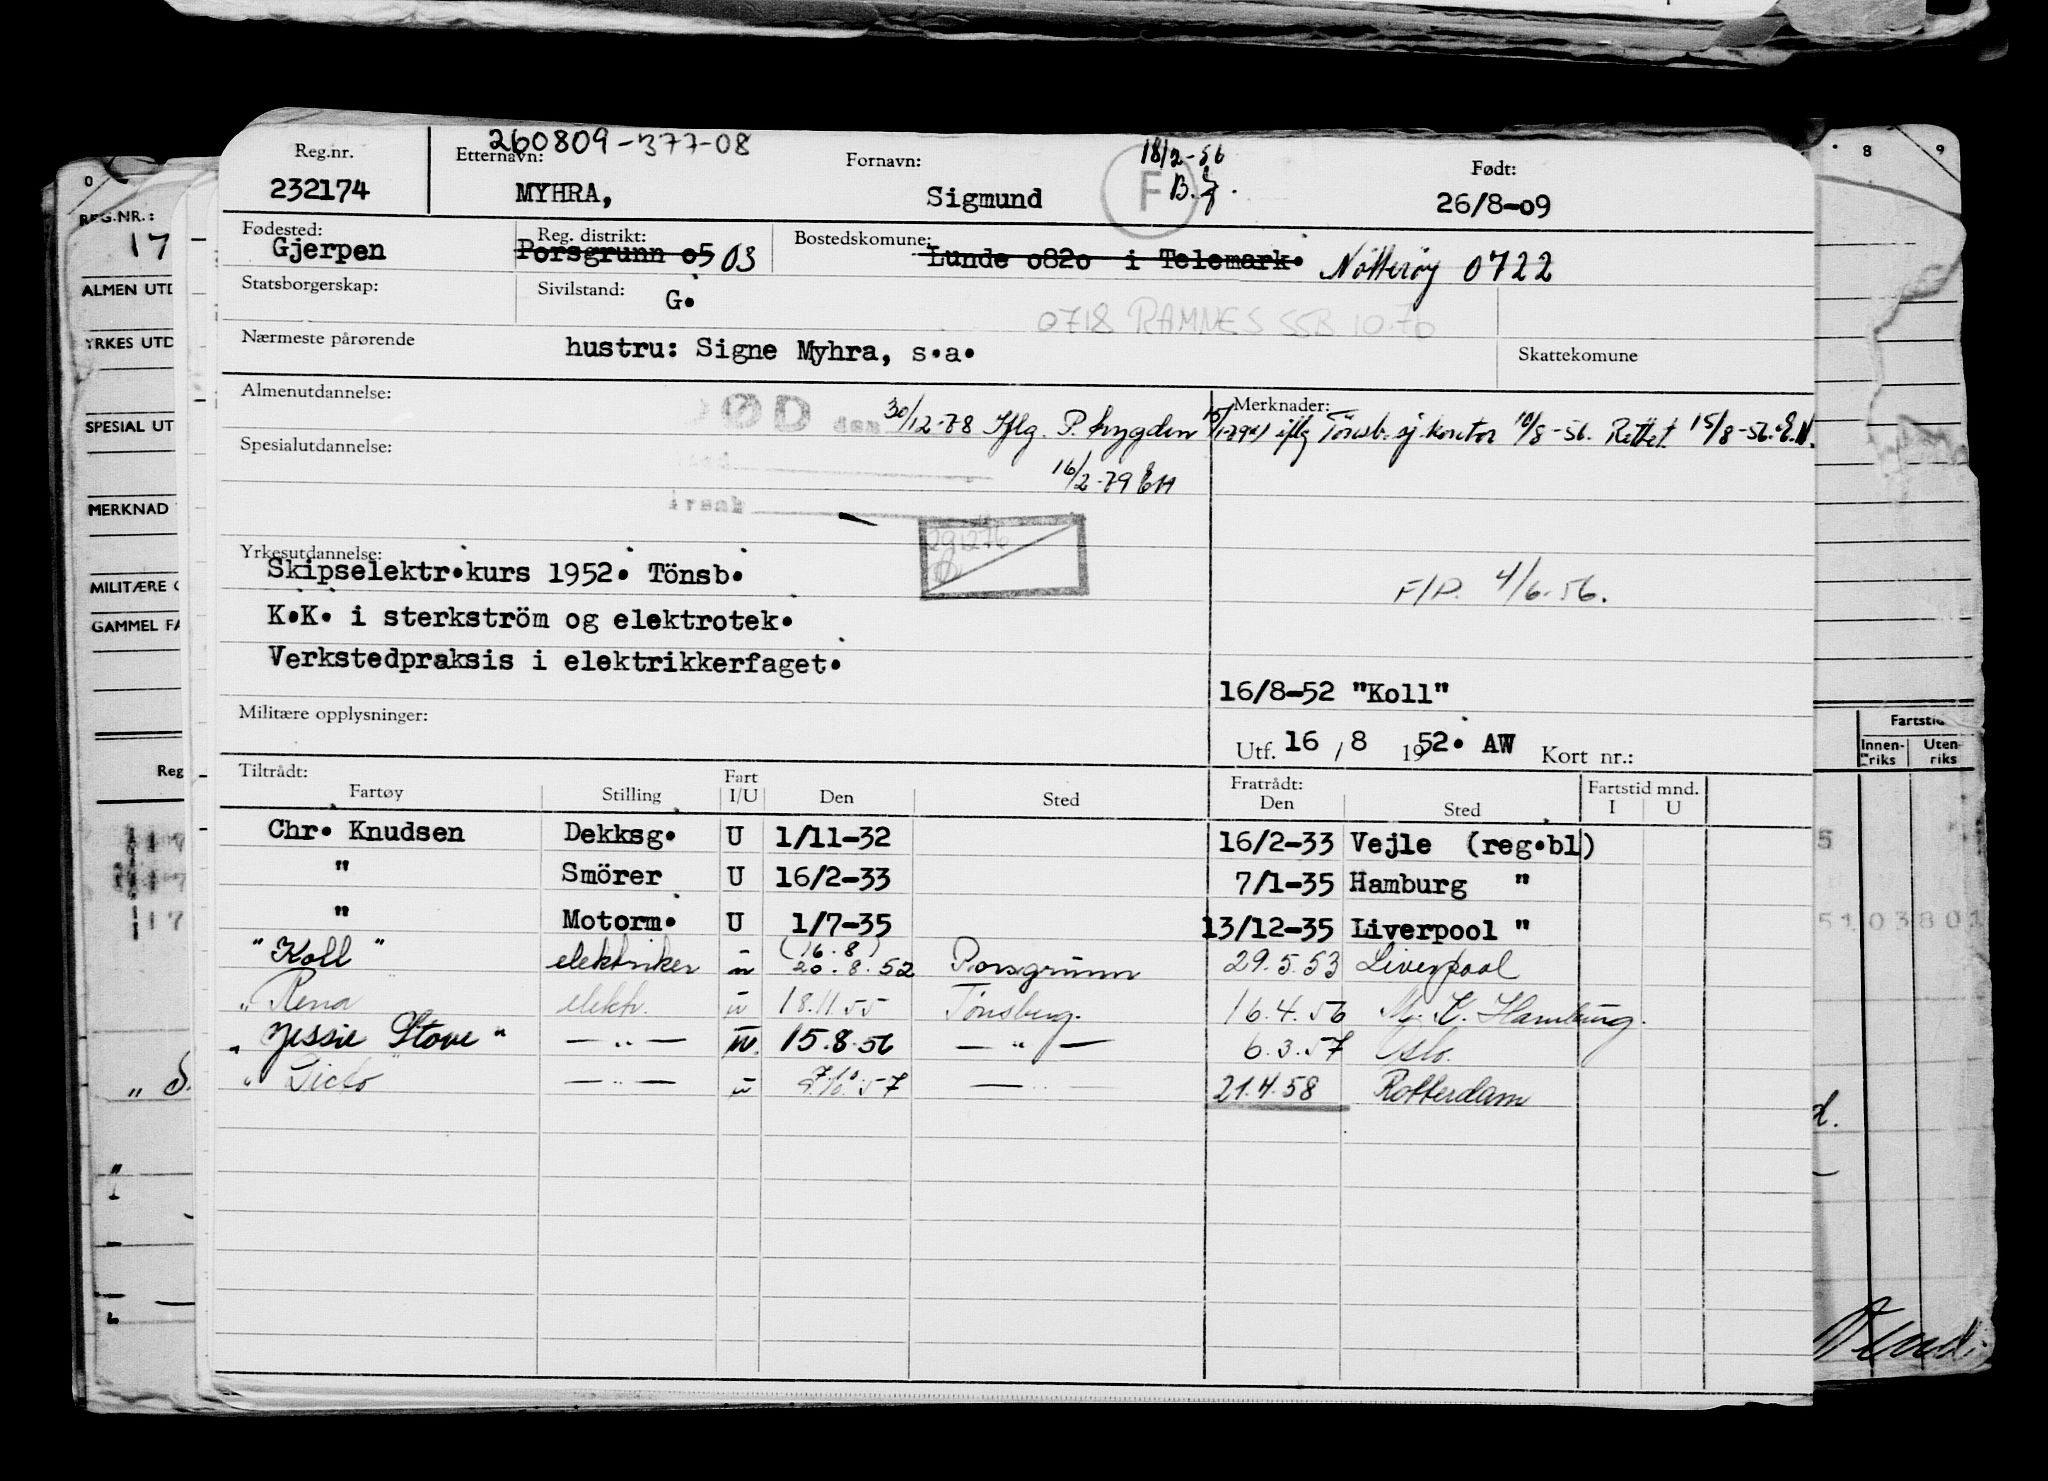 260809-377-08
Reg.nr. Etternavn: Fornavn: 18/2-56 Født:
232174 MYHRA, Sigmund F B. 26/8-09
Fødested: Reg. distrikt: Bostedskomune:
Gjerpen Porsgrunn o5 03 Lunde o82o i Telemark. Nøtterøy 0722
Statsborgerskap: Sivilstand: G.
0718 RAMNES SSB 10.70
Nærmeste pårørende hustru: Signe Myhra, s.a. Skattekomune
Almenutdannelse: Merknader:
DØD den 30/12-78 Iflg. P. trygden 15/1-79 iflg Tönsb. sj. kontor 10/8-56. Rettet 15/8-56. E.N.
Spesialutdannelse:
16/2-79 EH
Årsak
Yrkesutdannelse: 291276
Skipselektr.kurs 1952. Tönsb.
F/P. 4/6-56.
K.K. i sterkström og elektrotek.
Verkstedpraksis i elektrikkerfaget.
16/8-52 "Koll"
Militære opplysninger:
Utf. 16 / 8 1952. AW Kort nr.:
Tiltrådt: Fratrådt: Fartstid mnd.
Fartøy Stilling Fart I/U Den Sted Den Sted I U
Chr. Knudsen Dekksg. U 1/11-32 16/2-33 Vejle (reg.bl)
" Smörer U 16/2-33 7/1-35 Hamburg "
" Motorm. U 1/7-35 13/12-35 Liverpool "
(16.8)
"Koll" elektriker u 20.8.52 Porsgrunn 29.5.53 Liverpool
"Rena" elektr. u 18.11.55 Tønsberg. 16.4.56 M.K. Hamburg.
"Jessie Stove" — " — u. 15.8.56 — " — 6.3.57 Oslo.
"Ticto" — " — u 7/10.57 — " — 21.4.58 Rotterdam
0
REG.NR.:
17
ALMEN UTD
YRKES UTD
SPESIAL UT
MERKNAD
MILITÆRE O
GAMMEL FA
Reg
8 9
Fartstid
Innenriks Utenriks
5
5103801